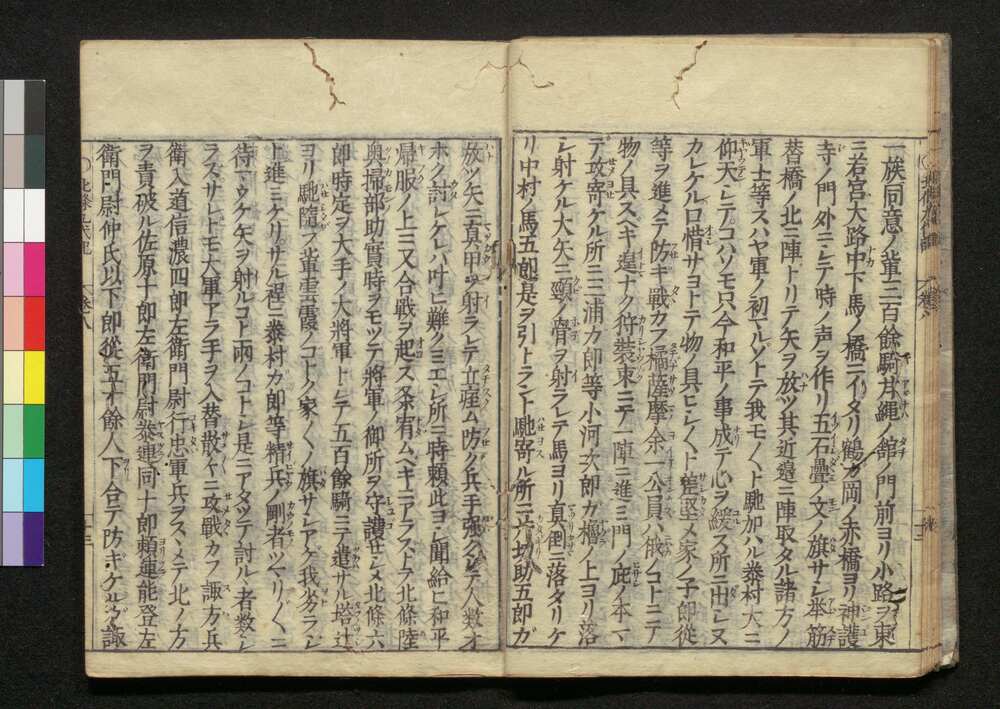 一族同意ノ輩三百餘騎甘縄ノ舘ノ門前ヨリ小路ヲ東
ニ若宮大路中下馬ノ橋ニイタリ鶴岡ノ赤橋ヨリ神護
寺ノ門外ニシテ時ノ声ヲ作リ五石疊ノ文ノ旗サシ挙筋
替橋ノ北ニ陣トリテ矢ヲ放ツ其近邊ニ陣取タル諸方ノ
軍士等スハヤ軍ノ初マルソトテ我モ〱ト馳加ハル泰村大ニ
仰天シテコハソモ只今和平ノ事成テ心ヲ緩ス所ニ出シヌ
カレケルロ惜サヨトテ物ノ具ヒシ〱ト差堅メ家ノ子郎從
等ヲ進メテ防キ戰カフ橘薩摩余一公員ハ俄ノコトニテ
物ノ具スヘキ遑ナク狩裝束ニテ一陣ニ進ミ門ノ庇ノ本マ
テ攻寄ケル所ニ三浦カ郎等小河次郎カ櫓ノ上ヨリ落
シ射ケル大矢ニ頸ノ骨ヲ射ラレテ馬ヨリ真倒ニ落タリケ
リ中村ノ馬五郎是ヲ引トラント馳寄ル所ニ片切助五郎カ
放ツ矢ニ真甲ヲ射ラレテ立煩ム防ク兵手强クシテ人数オ
ホク討レケレハ叶ヒ難ク三エシ所ニ時頼此ヨシ聞給ヒ和平
帰服ノ上ニ又合戰ヲ起ス条宥ムヘキニアラストテ北條陸
奥掃部助實時ヲモツテ將軍ノ御所ヲ守護セシメ北條六
郎時定ヲ大手ノ大將軍トシテ五百餘騎ニテ遣サル塔辻
ヨリ馳隨フ輩雲霞ノコトク家〱ノ旗サシアケ我劣ラシ
ト進ミケリサル程ニ泰村カ郎等精兵ノ剛者ツマリ〱ニ
待マウケ矢ヲ射ルコト雨ノコトシ是ニアタツテ討ル者数シ
ラスサレトモ大軍アラ手ヲ入替散々ニ攻戰カフ諏方兵
衛入道信濃四郎左衛門尉行忠軍兵ヲスヽメテ北ノ方
ヲ責破ル佐原十郎左衛門尉泰連同十郎頼連能登左
衛門尉仲氏以下郎從五十餘人下合テ防キケルカ諏